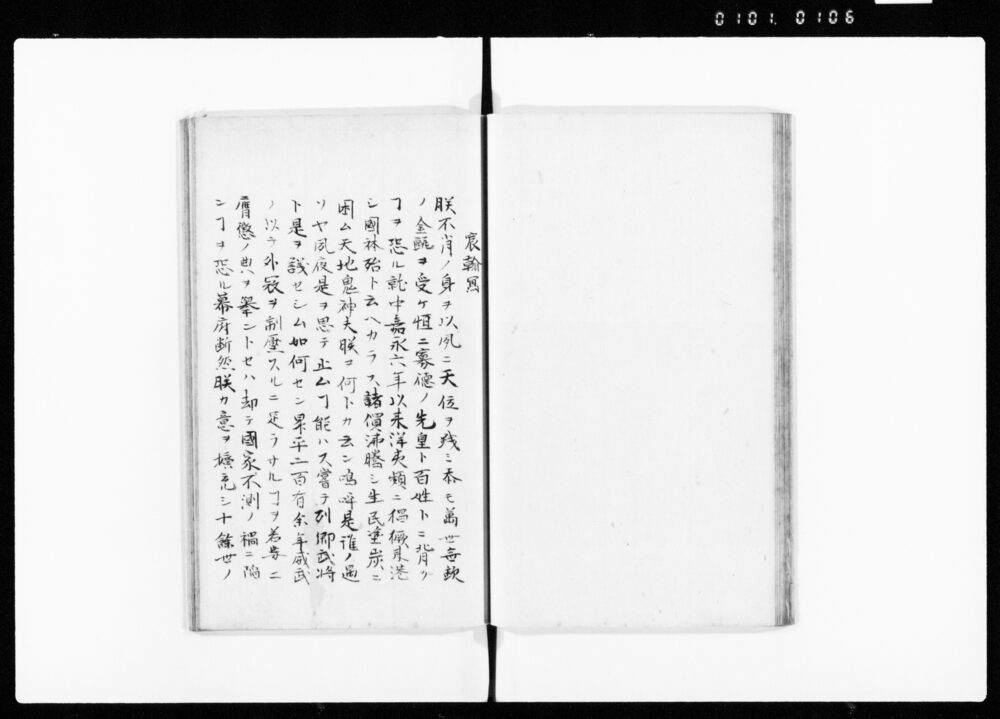 0101. 0106
宸翰写
朕不肖ノ身ヲ以夙ニ天位ヲ残ミ忝モ萬世無缺
ノ金甌ヲ受ケ恒ニ寡德ノ先皇ト百姓トニ背ク
ヿヲ恐ル就中嘉永六年以来洋夷頻ニ猖獗来港
シ國体殆ト云ヘカラス諸價沸騰シ生民塗炭ニ
困ム天地鬼神夫朕ヲ何トカ云ン嗚呼是誰ノ過
ソヤ夙夜是ヲ思テ止ムヿ能ハス嘗テ列卿武将
ト是ヲ議セシム如何セン昇平二百有余年威武
ノ以テ外寇ヲ制壓スルニ足ラサルヿヲ若妄ニ
膺懲ノ典ヲ挙ントセハ却テ國家不測ノ禍ニ陥
ンヿヲ恐ル幕府断然朕カ意ヲ擴充シ十餘世ノ